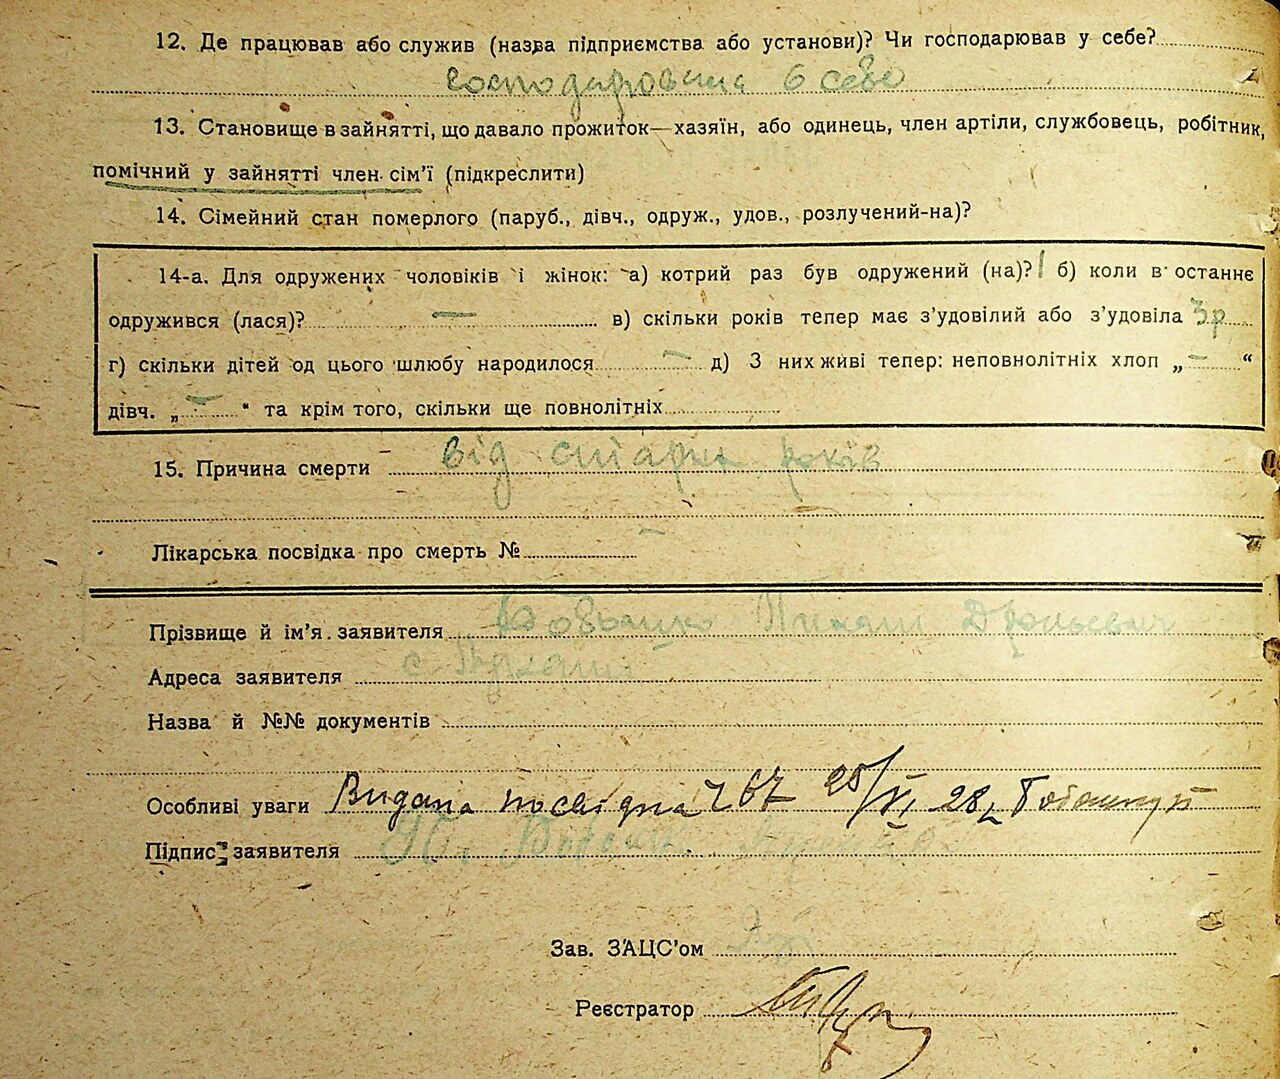 12. Де працював або служив (назва підприємства або установи)? Чи господарював у себе?
в себе
13. Становище в зайнятті, що давало прожиток—хазяїн, або одинець, член артіли, службовець, робітник,
помічний у зайнятті член сім'ї (підкреслити)
14. Сімейний стан померлого (паруб., дівч., одруж., удов., розлучений-на)?
14-а. Для одружених чоловіків і жінок: а) котрий раз був одружений (на)? 1 б) коли в останнє
одружився (лася)? — в) скільки років тепер має з'удовілий або з'удовіла 3 р
г) скільки дітей од цього шлюбу народилося — д) З них живі тепер: неповнолітніх хлоп „—“
дівч. „—“ та крім того, скільки ще повнолітніх
15. Причина смерти від років
Лікарська посвідка про смерть № —
Прізвище й ім'я заявителя
Адреса заявителя с.
Назва й №№ документів
Особливі уваги Видана 767 25/VI 28
Підпис заявителя
Зав. ЗАЦС'ом
Реєстратор